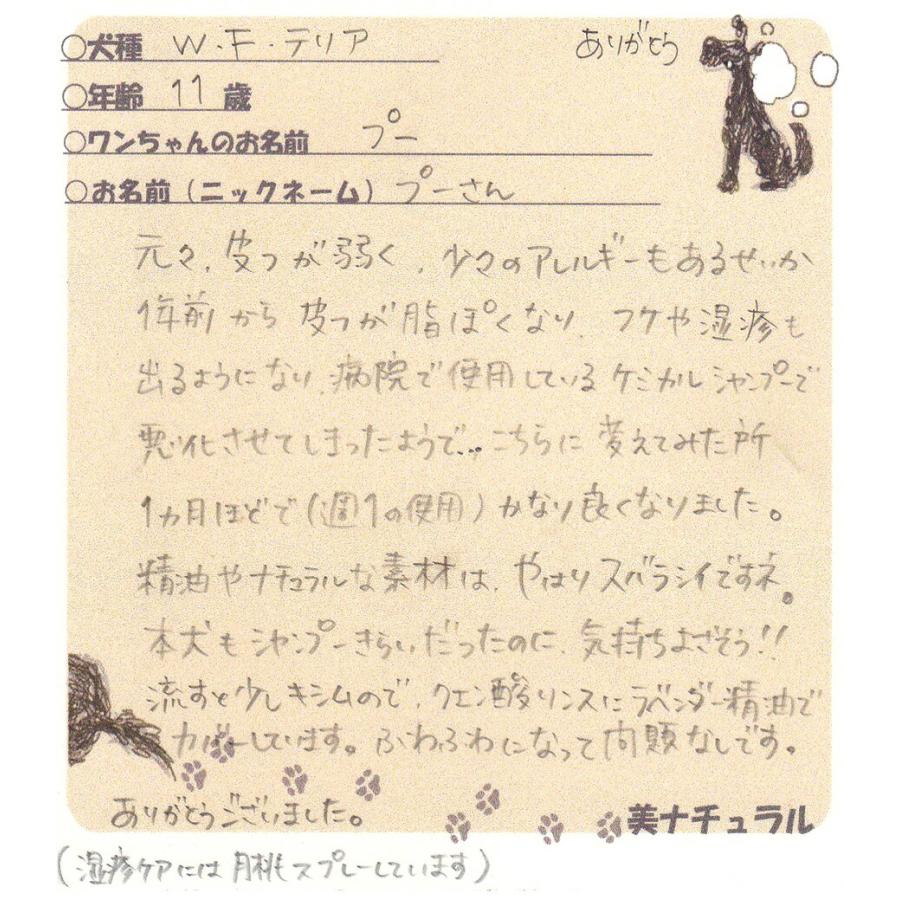 ○犬種 W.F.テリア
ありがとう
○年齢 11 歳
○ワンちゃんのお名前 プー
○お名前（ニックネーム）プーさん
元々、皮フが弱く、少々のアレルギーもあるせいか
1年前から皮フが脂ぽくなり、フケや湿疹も
出るようになり、病院で使用しているケミカルシャンプーで
悪化させてしまったようで…こちらに変えてみた所
1カ月ほどで(週1の使用)かなり良くなりました。
精油やナチュラルな素材は、やはりスバラシイですネ。
本犬もシャンプーきらいだったのに、気持ちよさそう!!
流すと少しキシムので、クエン酸リンスにラベンダー精油で
カバーしています。ふわふわになって問題なしです。
ありがとうございました。
美ナチュラル
(湿疹ケアには月桃スプレーしています)